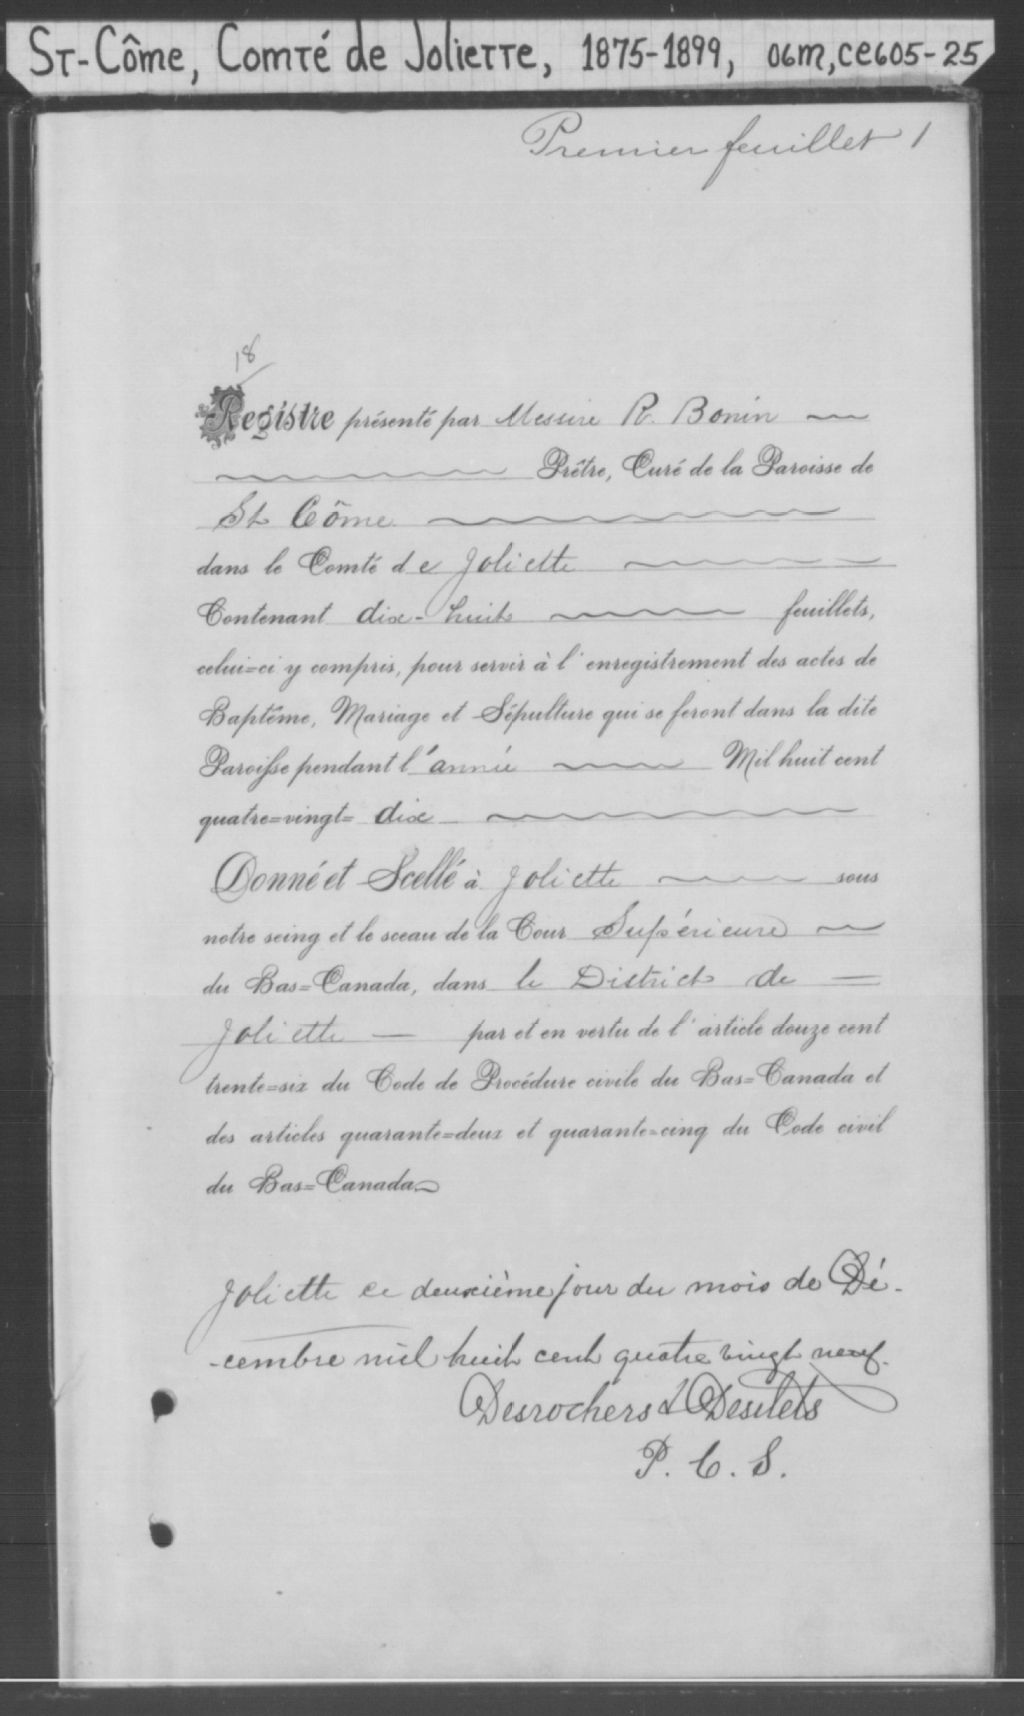 St-Côme, Comté de Joliette, 1875-1899, 06m,ce605-25
Premier feuillet 1
18
Registre présenté par Messire R. Bonin
Prêtre, Curé de la Paroisse de
St Côme
dans le Comté de Joliette
Contenant dix-huit feuillets,
celui=ci y compris, pour servir à l'enregistrement des actes de
Baptême, Mariage et Sépulture qui se feront dans la dite
Paroisse pendant l'année Mil huit cent
quatre=vingt= dix
Donné et Scellé à Joliette sous
notre seing et le sceau de la Cour Supérieure
du Bas=Canada, dans le District de
Joliette par et en vertu de l'article douze cent
trente=six du Code de Procédure civile du Bas=Canada et
des articles quarante=deux et quarante=cinq du Code civil
du Bas=Canada
Joliette ce deuxième jour du mois de Dé-
-cembre mil huit cent quatre vingt neuf.
Desrochers & Desilets
P. C. S.